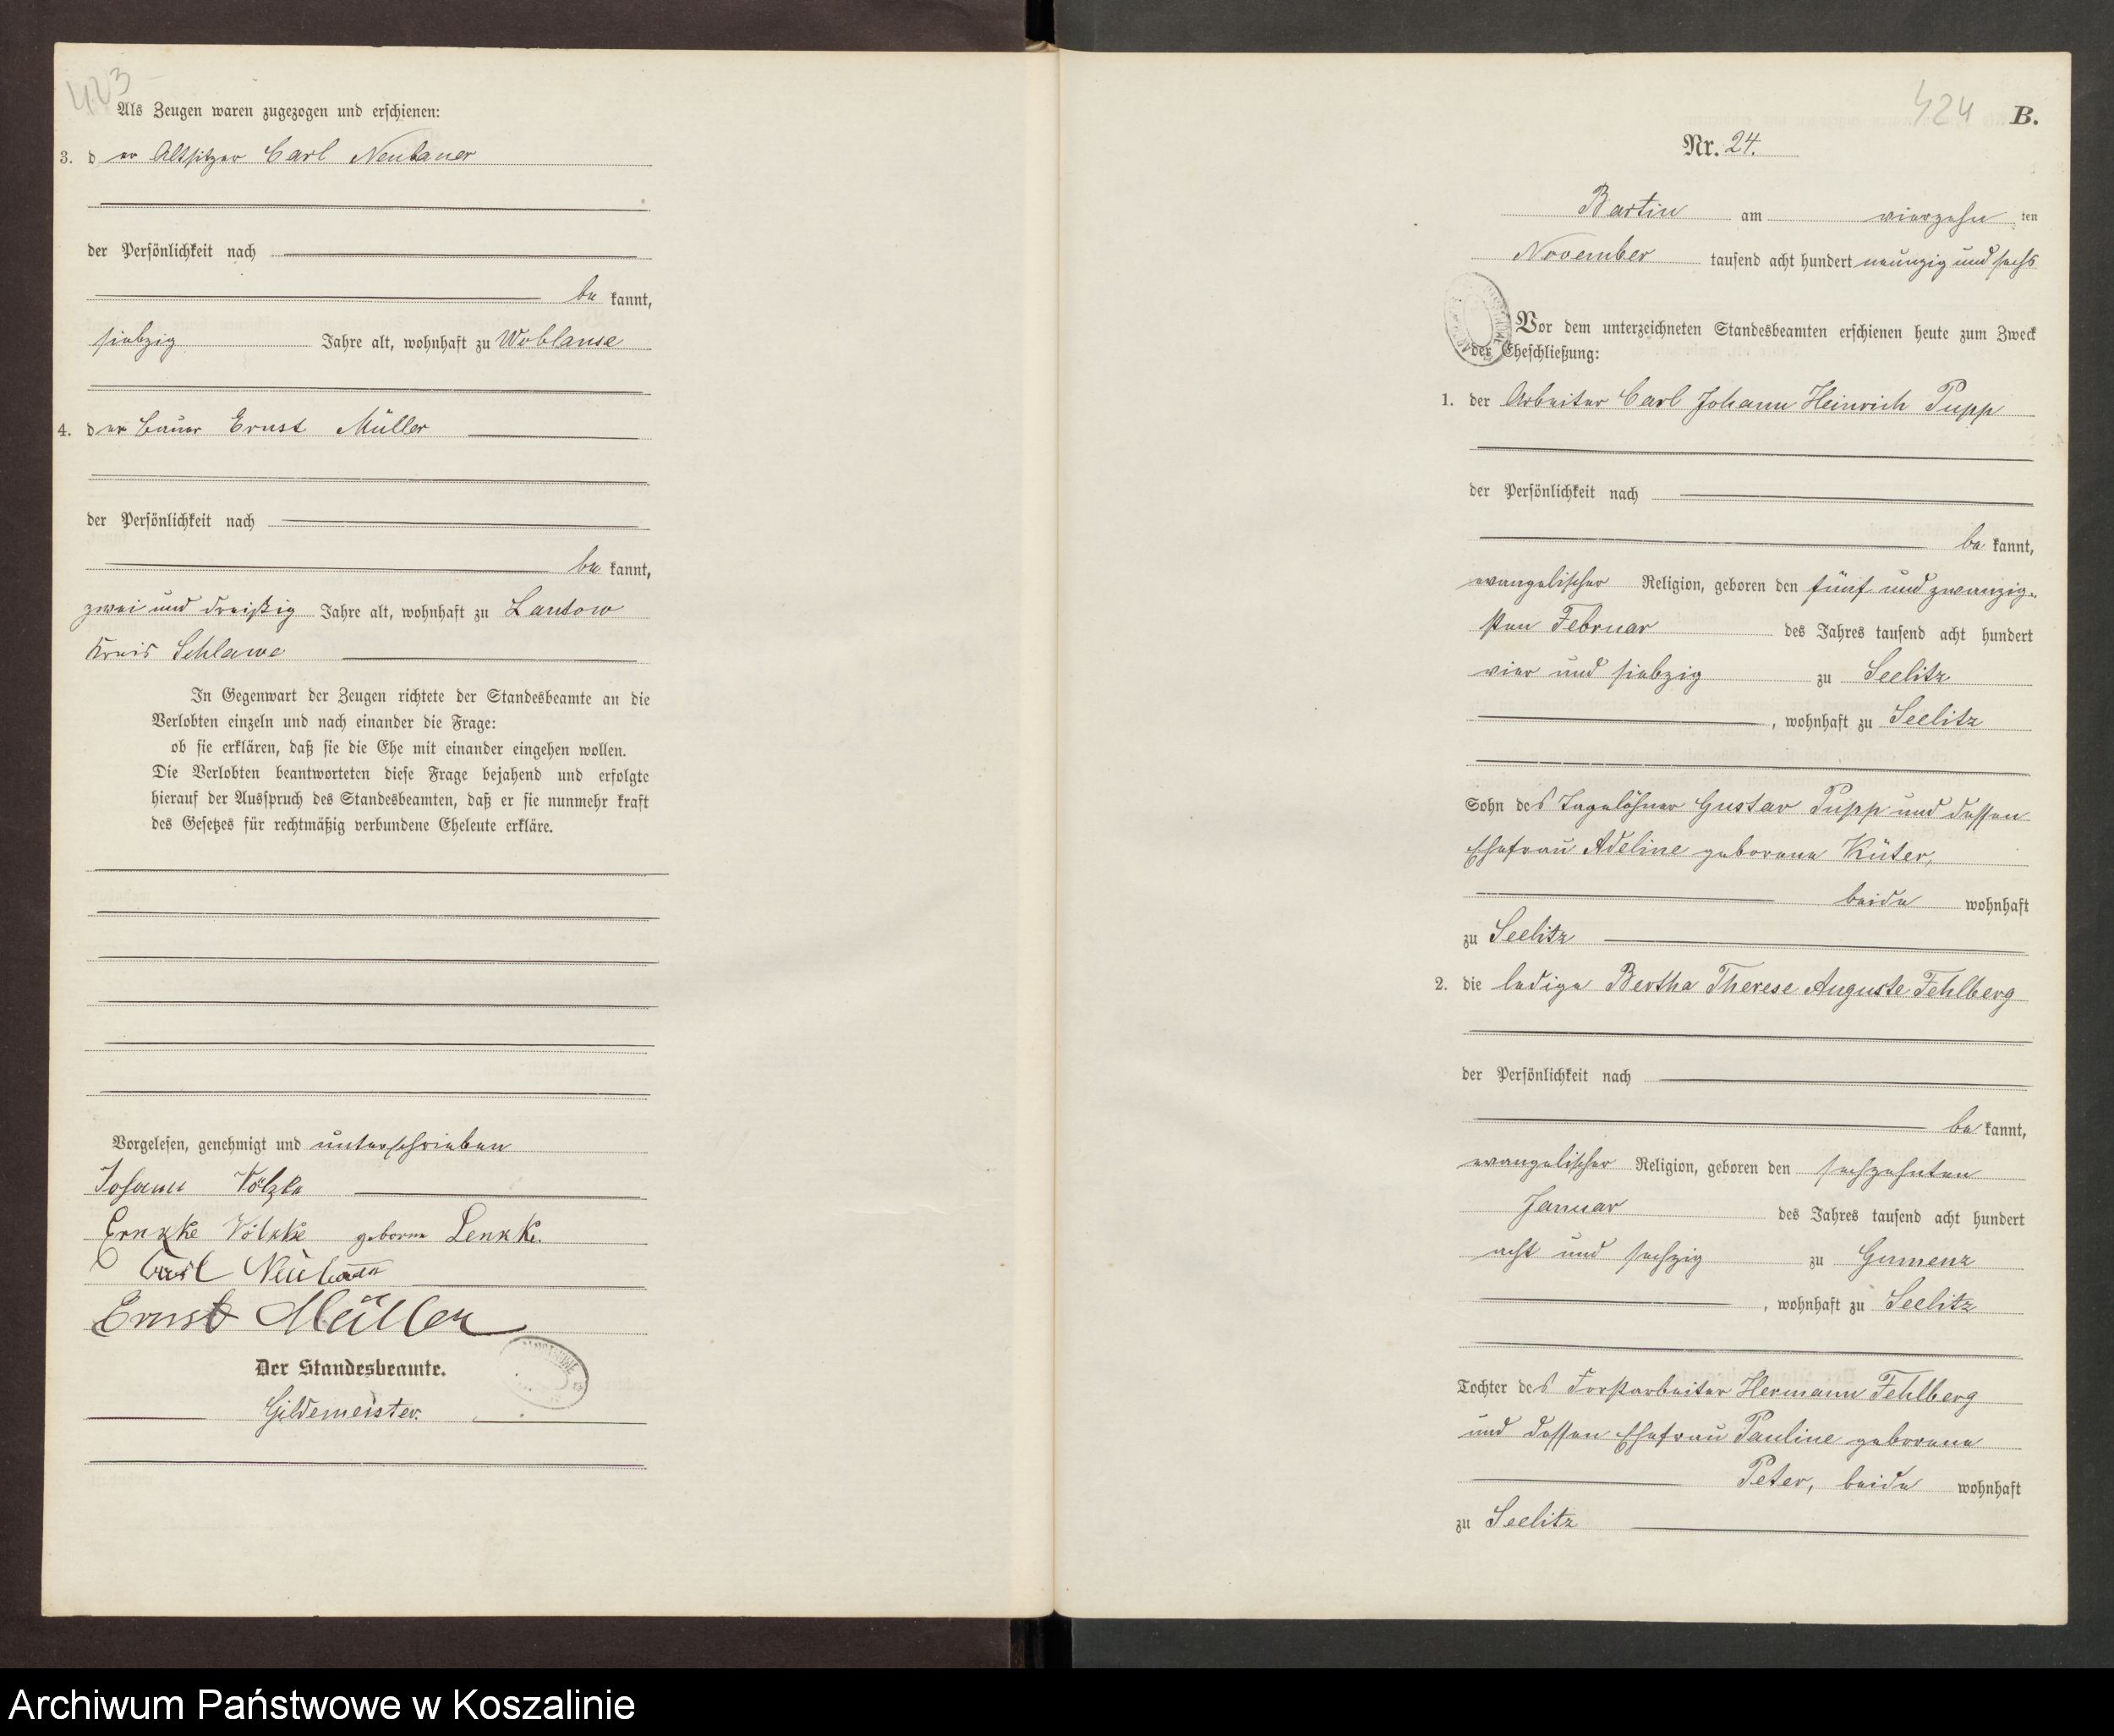 423
Als Zeugen waren zugezogen und erschienen:
3. der Altsitzer Carl Neubauer
der Persönlichkeit nach
be kannt,
siebzig Jahre alt, wohnhaft zu Woblanse
4. der Bauer Ernst Müller
der Persönlichkeit nach
be kannt,
zwei und dreißig Jahre alt, wohnhaft zu Lantow
Kreis Schlawe
In Gegenwart der Zeugen richtete der Standesbeamte an die
Verlobten einzeln und nach einander die Frage:
ob sie erklären, daß sie die Ehe mit einander eingehen wollen.
Die Verlobten beantworteten diese Frage bejahend und erfolgte
hierauf der Ausspruch des Standesbeamten, daß er sie nunmehr kraft
des Gesetzes für rechtmäßig verbundene Eheleute erkläre.
Vorgelesen, genehmigt und unterschrieben
Johann Völzke
Völzke geborne
Carl Neubauer
Ernst Müller
Der Standesbeamte.
Gildemeister.
424 B.
Nr. 24.
Bartin am vierzehn ten
November tausend acht hundert neunzig und sechs
Vor dem unterzeichneten Standesbeamten erschienen heute zum Zweck
der Eheschließung:
1. der Arbeiter Carl Johann Heinrich Pupp
der Persönlichkeit nach
be kannt,
evangelischer Religion, geboren den fünf und zwanzig-
sten Februar des Jahres tausend acht hundert
vier und siebzig zu Seelitz
, wohnhaft zu Seelitz
Sohn des Tagelöhner Gustav Pupp und dessen
Ehefrau Adeline geborene Küter,
beide wohnhaft
zu Seelitz
2. die ledige Bertha Therese Auguste Fehlberg
der Persönlichkeit nach
be kannt,
evangelischer Religion, geboren den sechzehnten
Januar des Jahres tausend acht hundert
acht und sechzig zu Gumenz
, wohnhaft zu Seelitz
Tochter des Forstarbeiter Hermann Fehlberg
und dessen Ehefrau Pauline geborene
Peter, beide wohnhaft
zu Seelitz
Archiwum Państwowe w Koszalinie